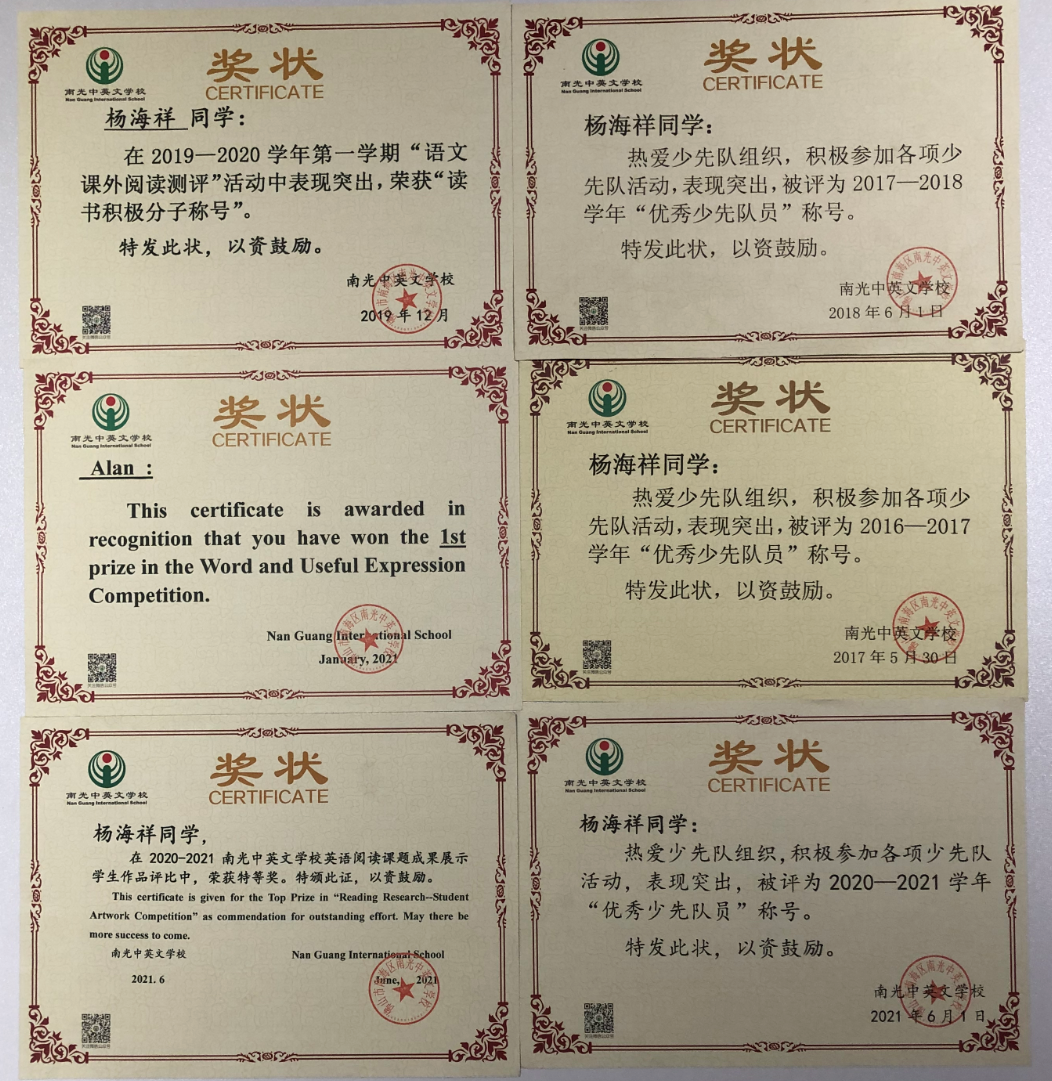 南光中英文学校
Nan Guang International School
奖状
CERTIFICATE
杨海祥 同学：
在 2019—2020 学年第一学期“语文
课外阅读测评”活动中表现突出，荣获“读
书积极分子称号”。
特发此状，以资鼓励。
南光中英文学校
2019 年 12 月
南光中英文学校
Nan Guang International School
奖状
CERTIFICATE
杨海祥同学：
热爱少先队组织，积极参加各项少
先队活动，表现突出，被评为 2017—2018
学年“优秀少先队员”称号。
特发此状，以资鼓励。
南光中英文学校
2018 年 6 月 1 日
南光中英文学校
Nan Guang International School
奖状
CERTIFICATE
Alan :
This certificate is awarded in
recognition that you have won the 1st
prize in the Word and Useful Expression
Competition.
Nan Guang International School
January, 2021
南光中英文学校
Nan Guang International School
奖状
CERTIFICATE
杨海祥同学：
热爱少先队组织，积极参加各项少
先队活动，表现突出，被评为 2016—2017
学年“优秀少先队员”称号。
特发此状，以资鼓励。
南光中英文学校
2017 年 5 月 30 日
南光中英文学校
Nan Guang International School
奖状
CERTIFICATE
杨海祥同学，
在 2020-2021 南光中英文学校英语阅读课题成果展示
学生作品评比中，荣获特等奖。特颁此证，以资鼓励。
This certificate is given for the Top Prize in “Reading Research--Student
Artwork Competition” as commendation for outstanding effort. May there be
more success to come.
南光中英文学校 Nan Guang International School
2021. 6 June, 2021
南光中英文学校
Nan Guang International School
奖状
CERTIFICATE
杨海祥同学：
热爱少先队组织，积极参加各项少先队
活动，表现突出，被评为 2020—2021 学年
“优秀少先队员”称号。
特发此状，以资鼓励。
南光中英文学校
2021 年 6 月 1 日